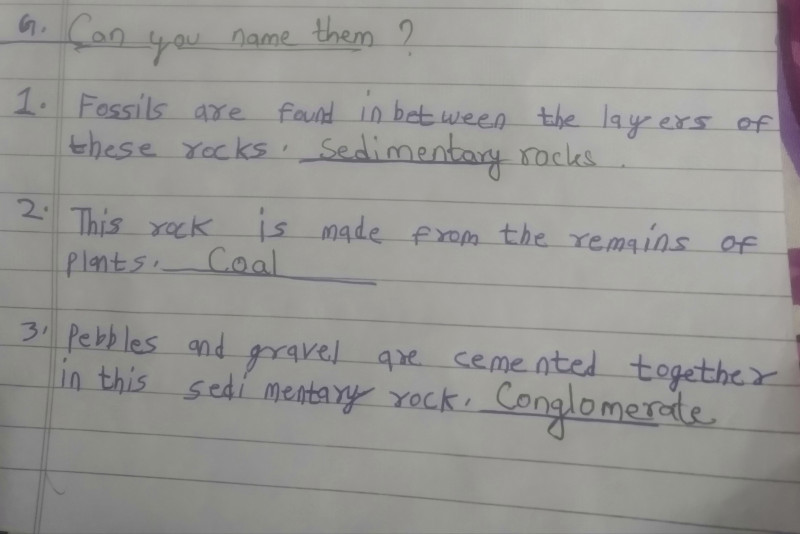 G. Can you name them ?
1. Fossils are found in between the layers of
these rocks. Sedimentary rocks.
2. This rock is made from the remains of
plants. Coal
3. Pebbles and gravel are cemented together
in this sedimentary rock. Conglomerate